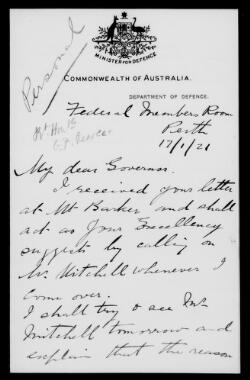 Personal
MINISTER FOR DEFENCE
COMMONWEALTH OF AUSTRALIA.
DEPARTMENT OF DEFENCE.
Federal Members Room
Perth
Rt Hon
G.F. Pearce
17/1/21
My dear Governor.
I received your letter
at Mt Barker and shall
act as Your Excellency
suggests by calling on
Mr. Mitchell whenever I
come over.
I shall try & see Mr
Mitchell tomorrow and
explain that the reason